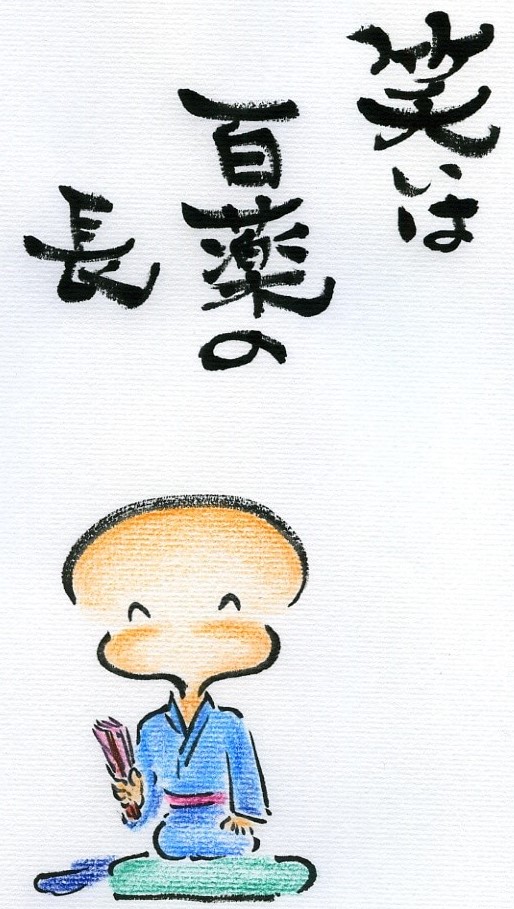 笑いは
百薬の
長